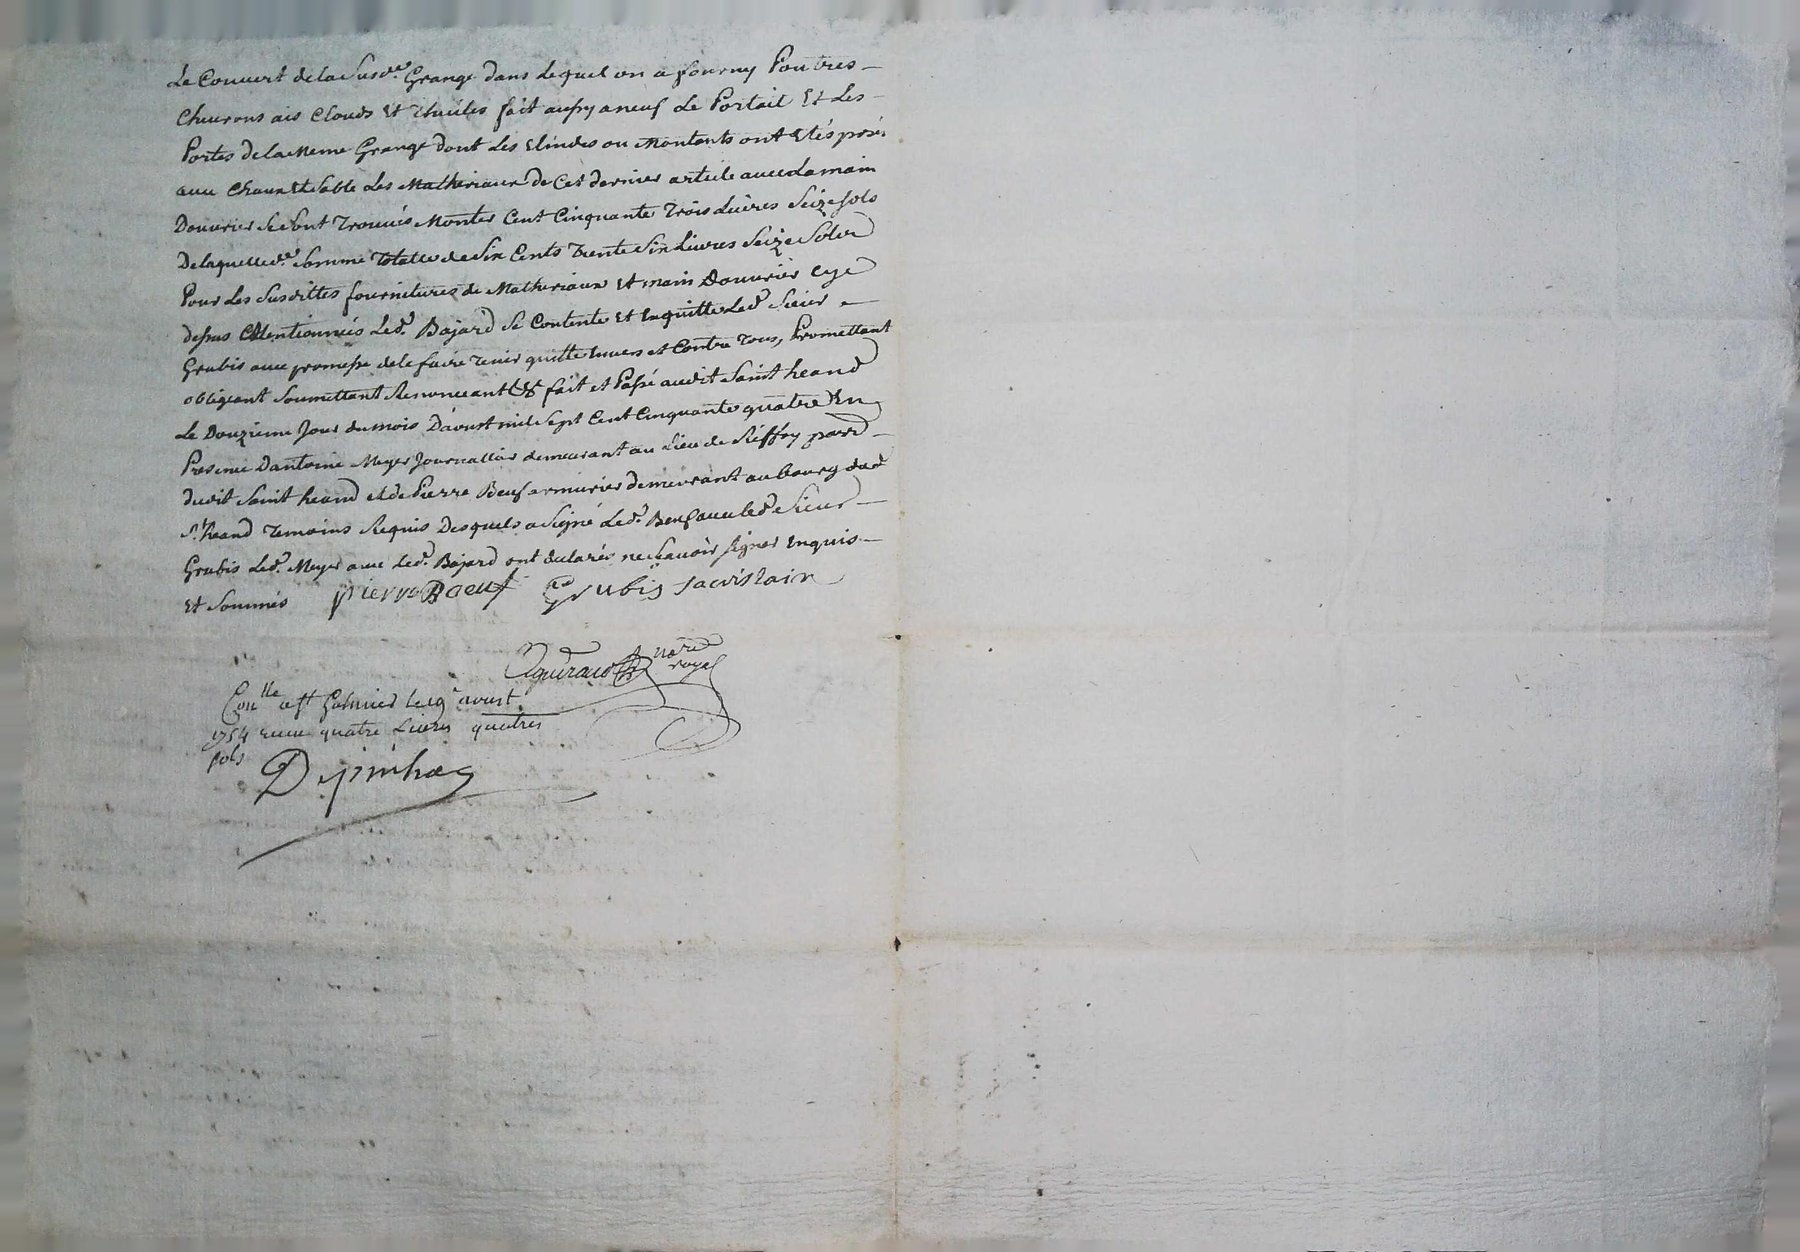 Le Couvert de la Susd.e Grange dans Lequel on a fourny Poutres
Chevrons ais Clouds Et Thuiles fait aussy a neuf Le Portail Et Les
Portes de la Meme Grange dont Les Elindes ou Montants ont Etés posés
avec Chaux Et Sable Les Matheriaux de Cet dernier article avec La main
Douvrier Se Sont Trouvés Monter Cent Cinquante Trois Livres Seize Sols
De laquelle d.e Somme Totalle de Six Cents Trente Six Livres Seize Sols
Pour Les Susdittes fournitures de Matheriaux Et main Douvrier Cy
dessus Mentionnées Led.t Bajard Se Contente Et En quitte Led.t Sieur
Grubis avec promesse de le faire Tenir quitte Envers et Contre Tous, Promettant
obligeant Soumettant Renonceant &c fait et Passé audit Saint heand
Le Douzieme Jour du mois Daoust mil Sept Cent Cinquante quatre En
Presence Dantoine Meyer Journallier demeurant au Lieu de parr.
dudit Saint heand et de Pierre Beuf armurier demeurant au bourg dud.t
S.t heand Temoins Requis Desquels a Signé Led.t Beuf avec led.t Sieur
Grubis Led.t Meyer avec Led.t Bajard ont declarés ne Scavoir Signer Enquis
Et Sommés pierre Baeuf Grubis Sacristain
no.re
royal
Con.lle a St Galmier le 19 aoust
1754 receu quatre Livres quatres
sols